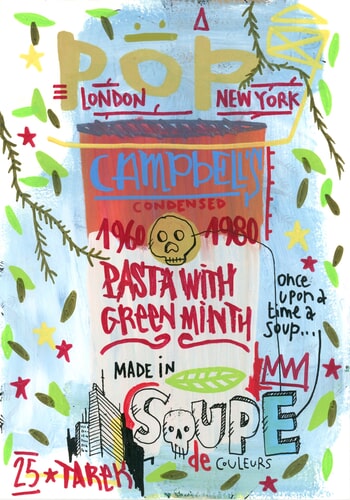 POP
LONDON NEW YORK
CAMPBELL'S
CONDENSED
1960 1980
PASTA WITH
GREEN MINTH
once
upon a
time a
soup...
MADE IN
SOUPE
de COULEURS
25 ★ TAREK